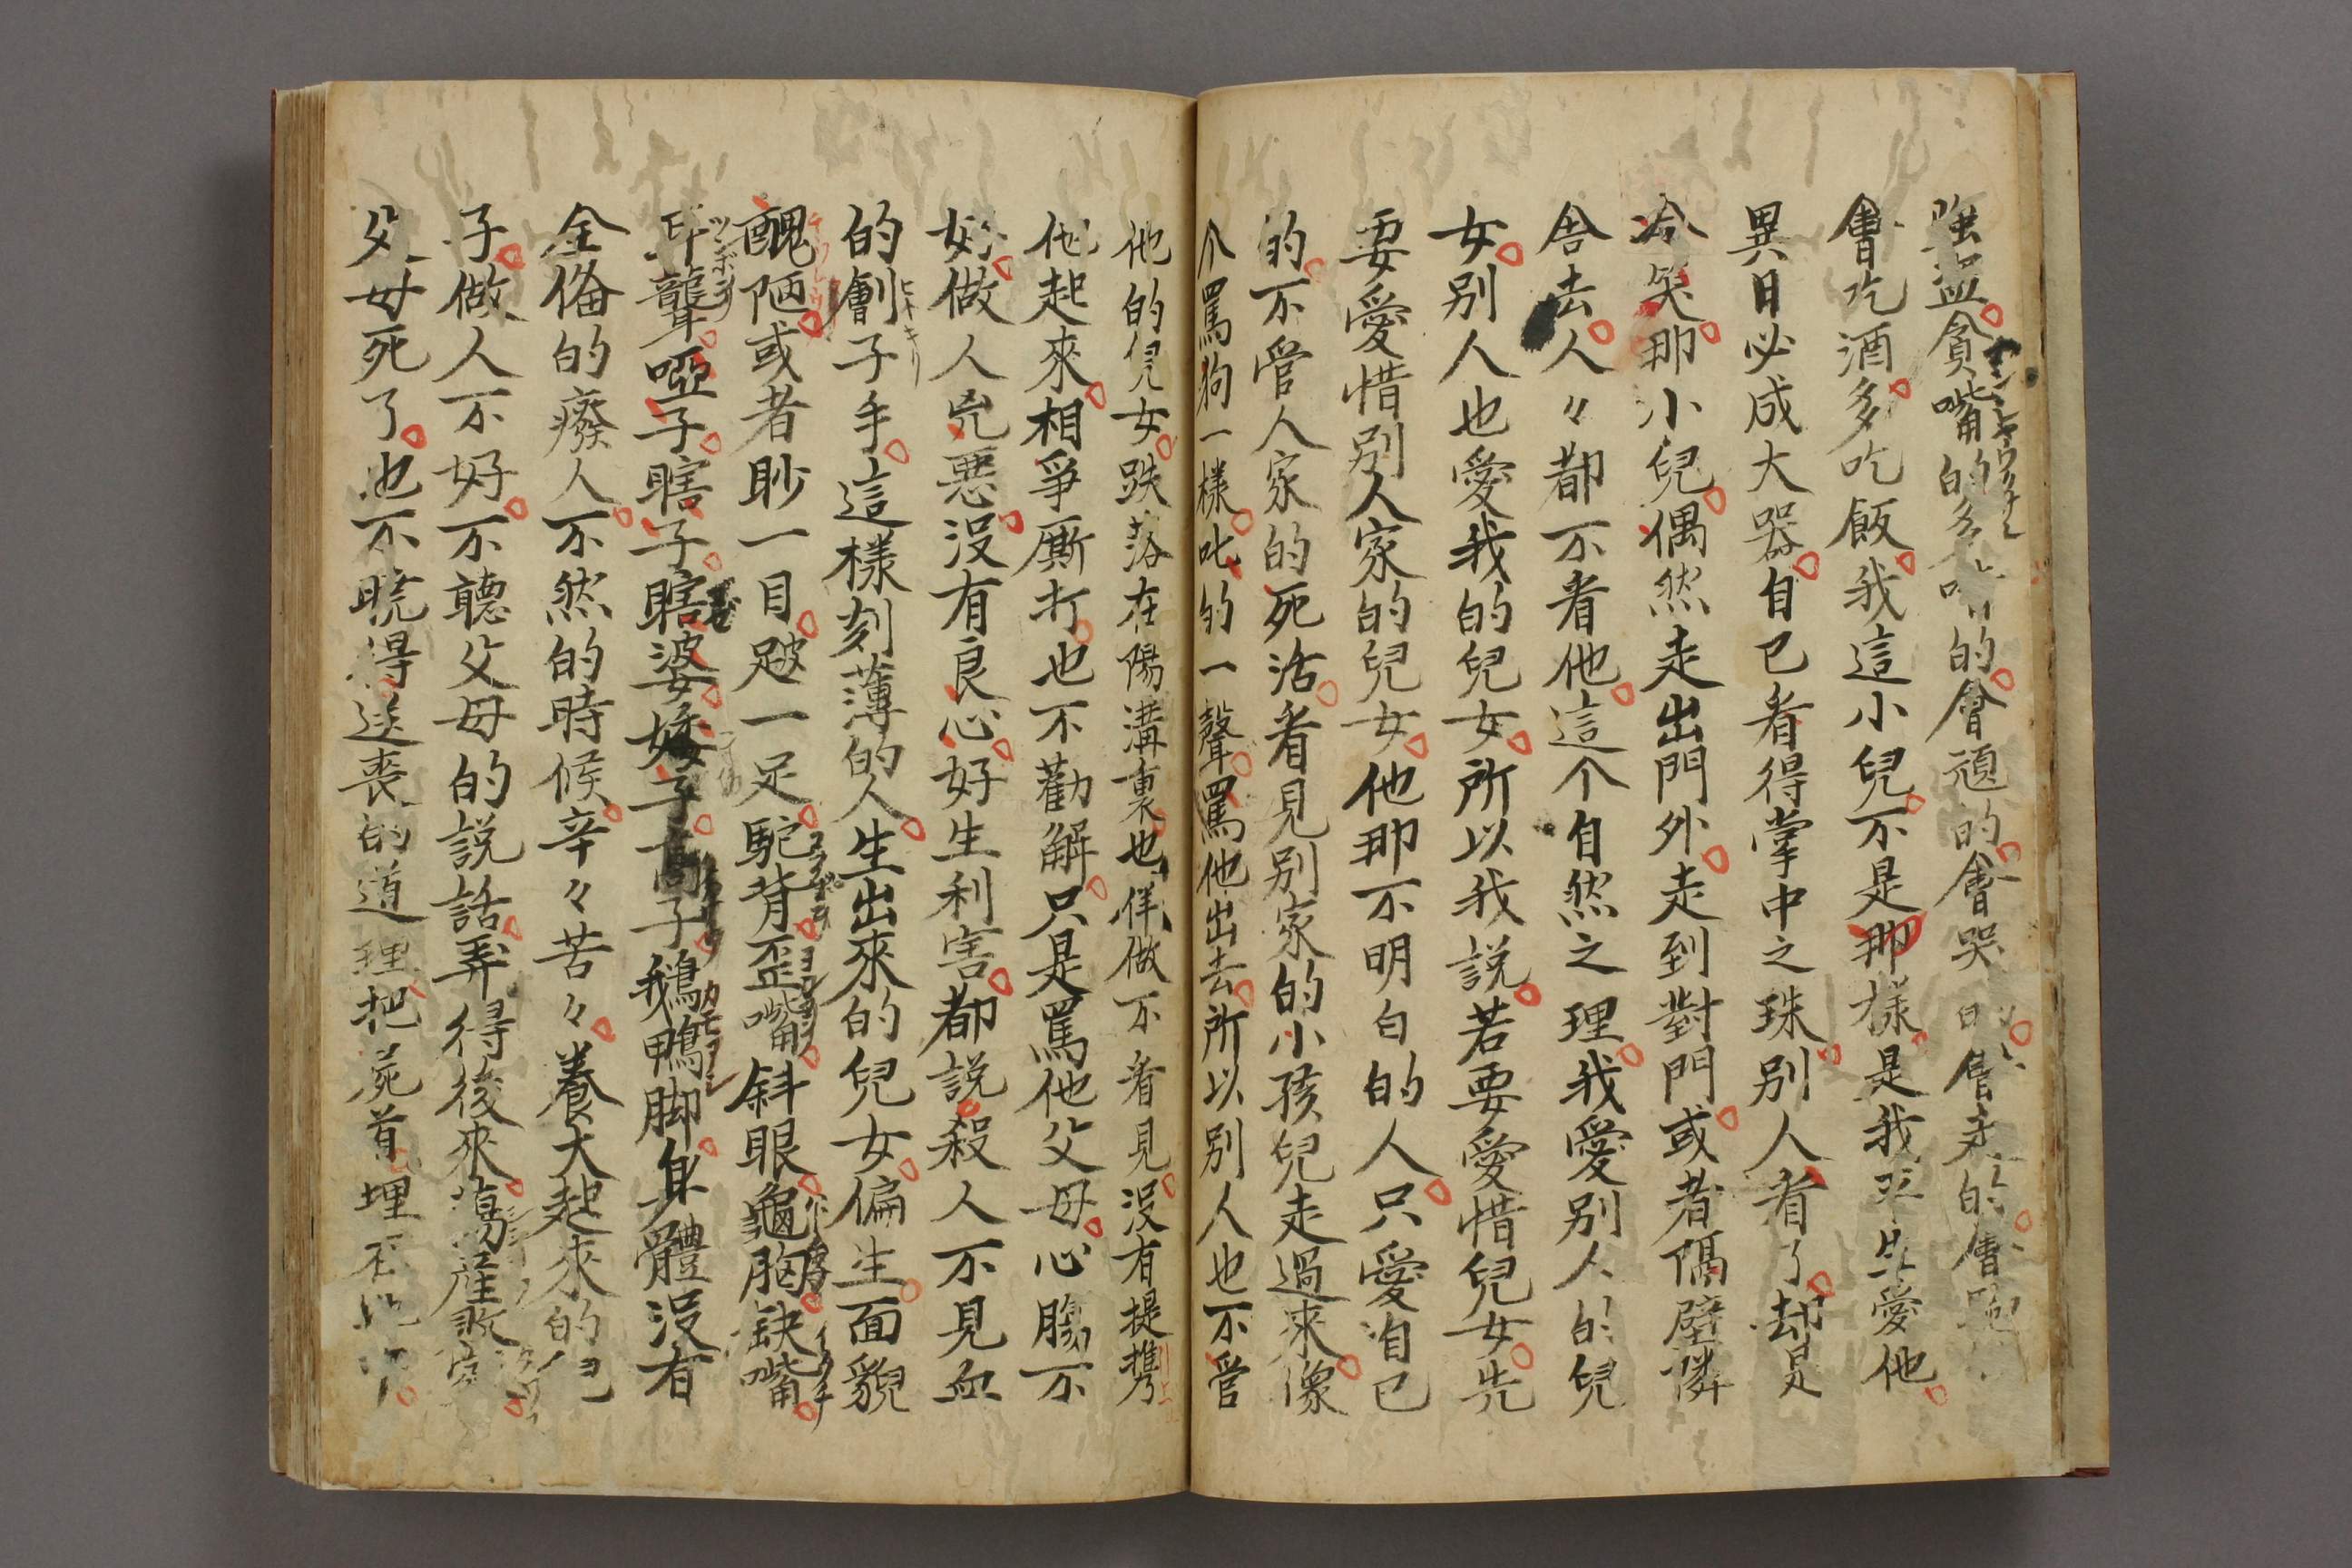 強盗貪嘴的多嘴的會頑的會哭的會走的會跑
會吃酒多吃飯我這小兒不是那樣是我平生愛他
異日必成大器自己看得掌中之珠別人看了却是
冷笑那小兒偶然走出門外走到對門或者隔壁隣
舎去人々都不看他這个自然之理我愛別人的兒
女別人也愛我的兒女所以我説若要愛惜兒女先
要愛惜別人家的兒女他那不明白的人只愛自己
的不管人家的死活看見別家的小孩兒走過來像
个罵狗一樣叱的一聲罵他出去所以別人也不管
他的兒女跌落在陽溝裏也佯做不看見沒有提携
他起來相爭厮打也不勸解只是罵他父母心腸不
好做人兇惡沒有良心好生利害都説殺人不見血
的劊子手這樣刻薄的人生出來的兒女偏生面貌
醜陋或者眇一目跛一足駝背歪嘴斜眼龜胸缺嘴
耳聾啞子瞎子瞎婆矮子高子鵝鴨脚身體沒有
全俻的癈人不然的時候辛々苦々養大起來的兒
子做人不好不聽父母的説話弄得後來蕩産敗家
父母死了也不暁得送喪的道理把死首埋